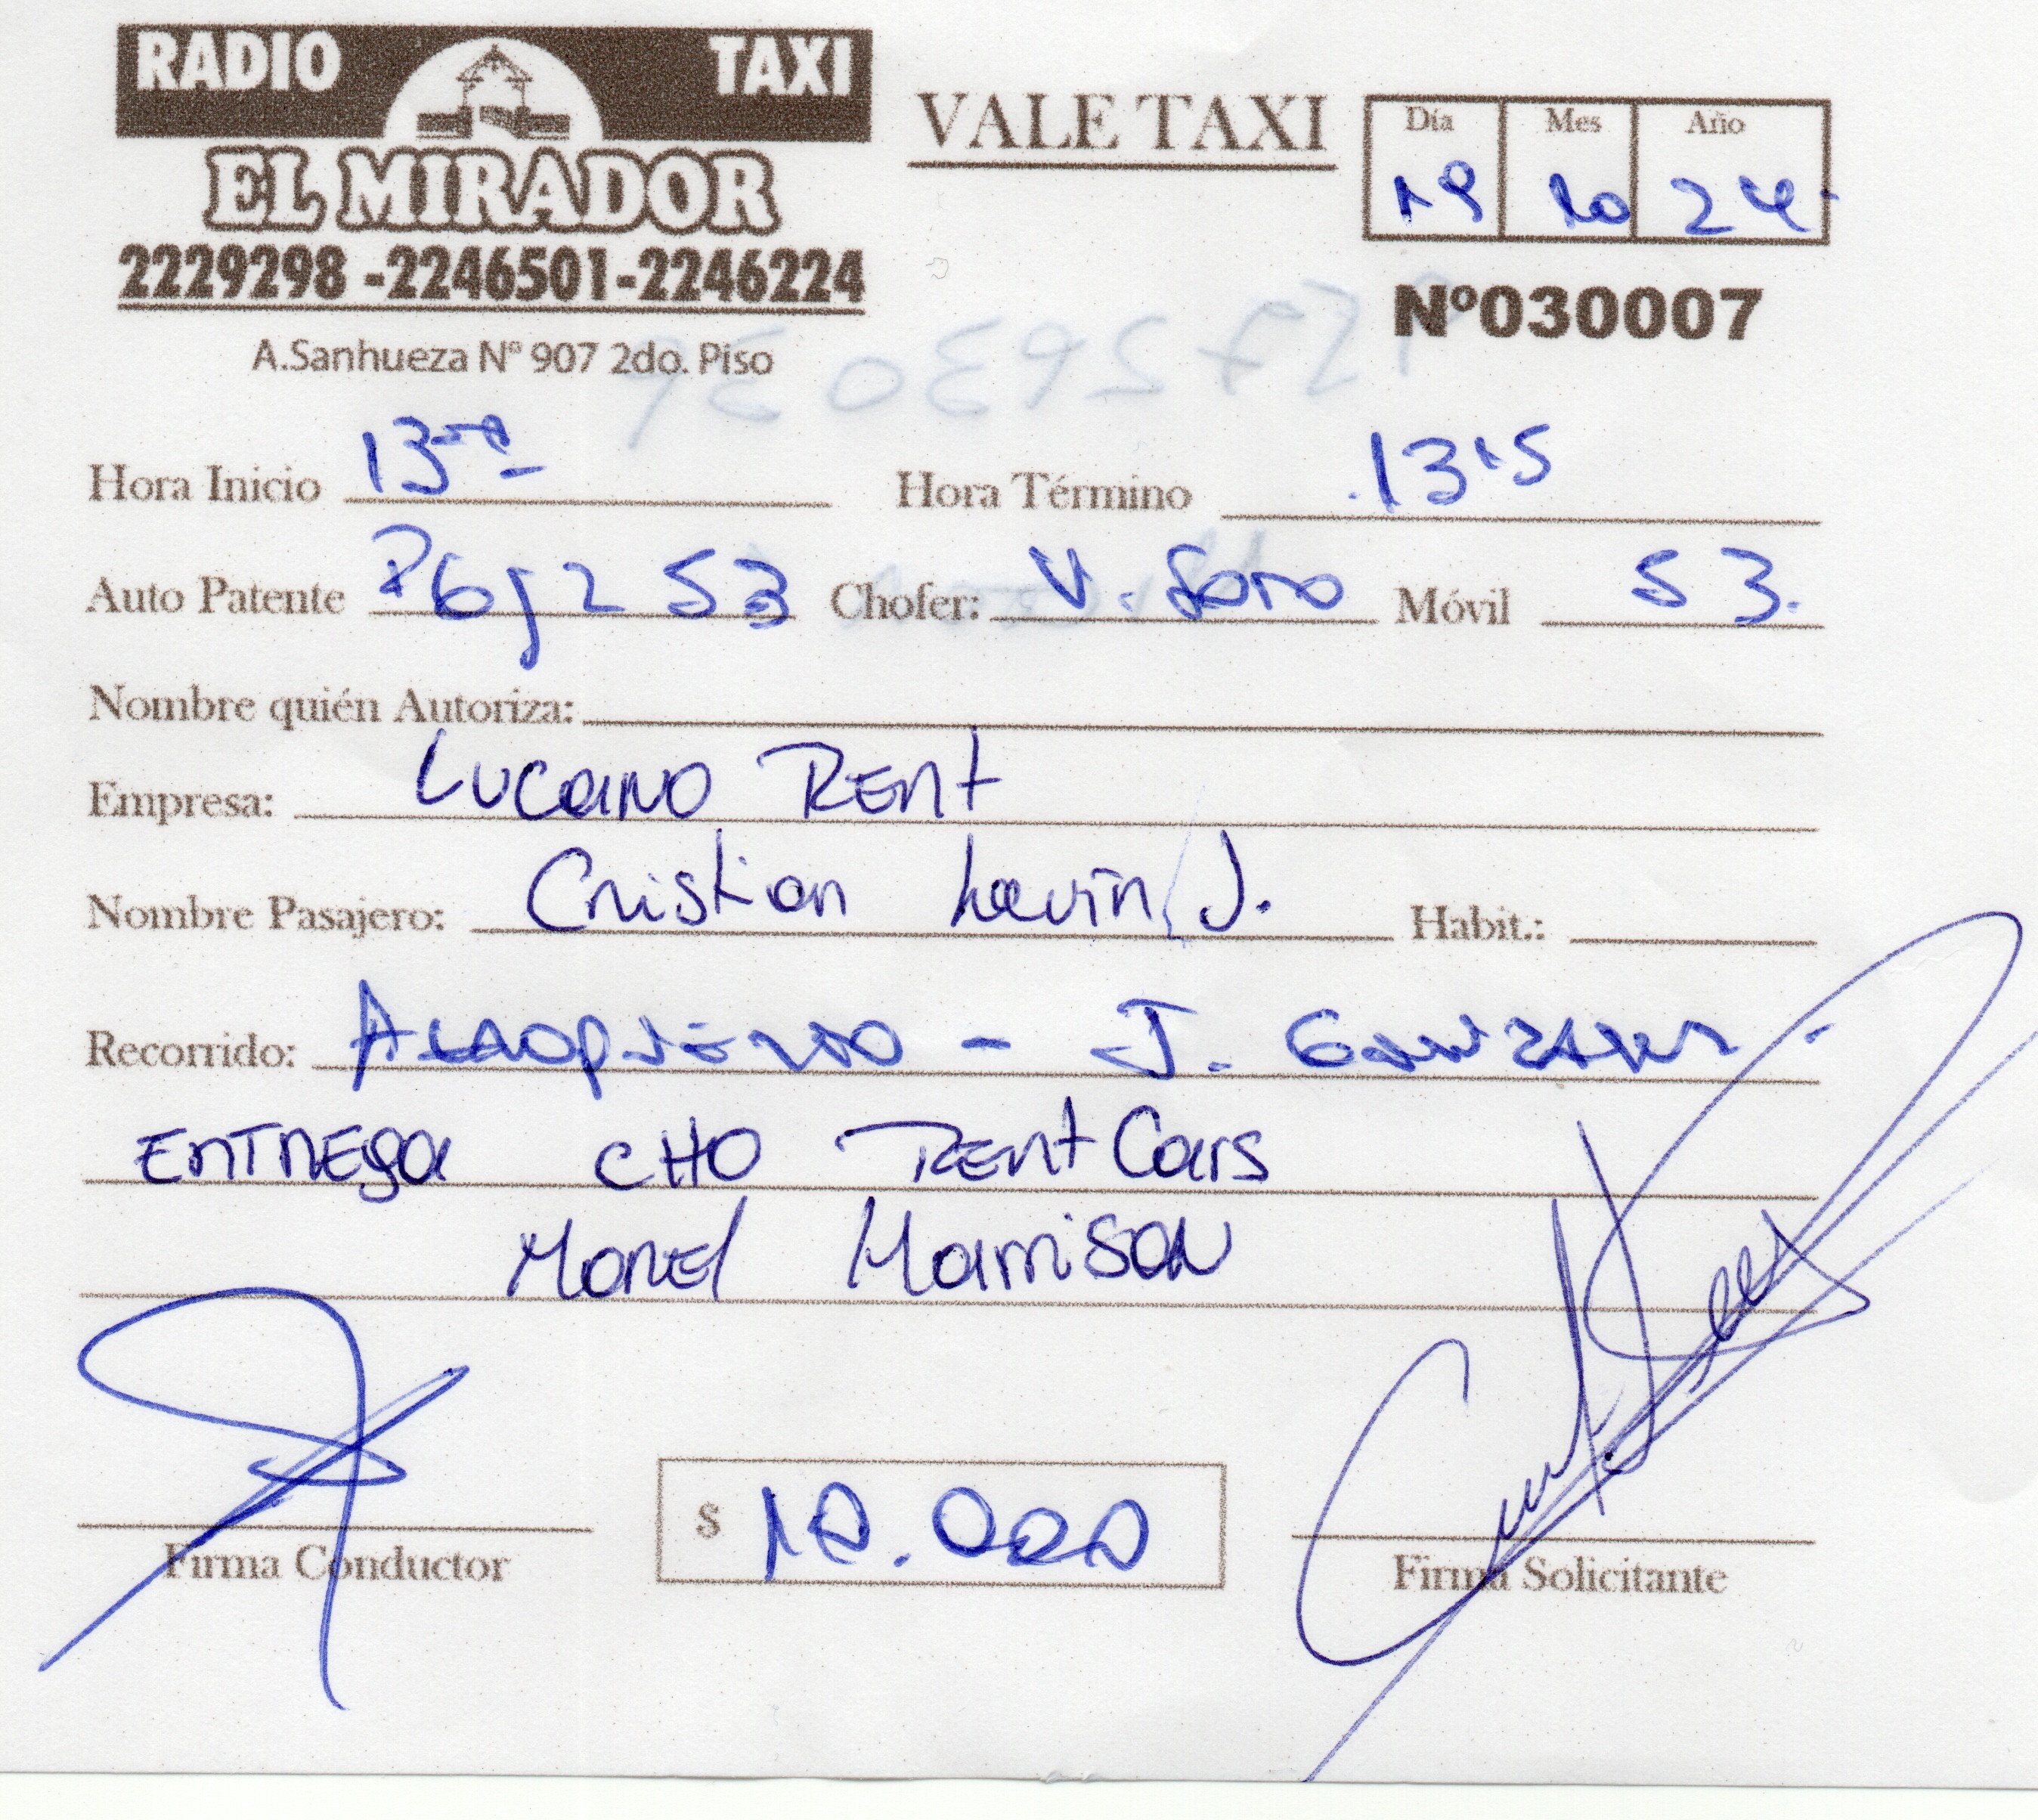 RADIO TAXI
EL MIRADOR
2229298 -2246501-2246224
A.Sanhueza N° 907 2do. Piso
VALE TAXI
Día Mes Año
19 10 24
N°030007
Hora Inicio 13 Hora Término 13 15
Auto Patente 53 Chofer: V. Soto Móvil 53.
Nombre quién Autoriza:
Empresa: Lucano Rent
Nombre Pasajero: Cristian Lavin J. Habit.:
Recorrido: - J.
Entrega CHO Rent Cars
Morel Harrison
Firma Conductor
$ 10.000
Firma Solicitante